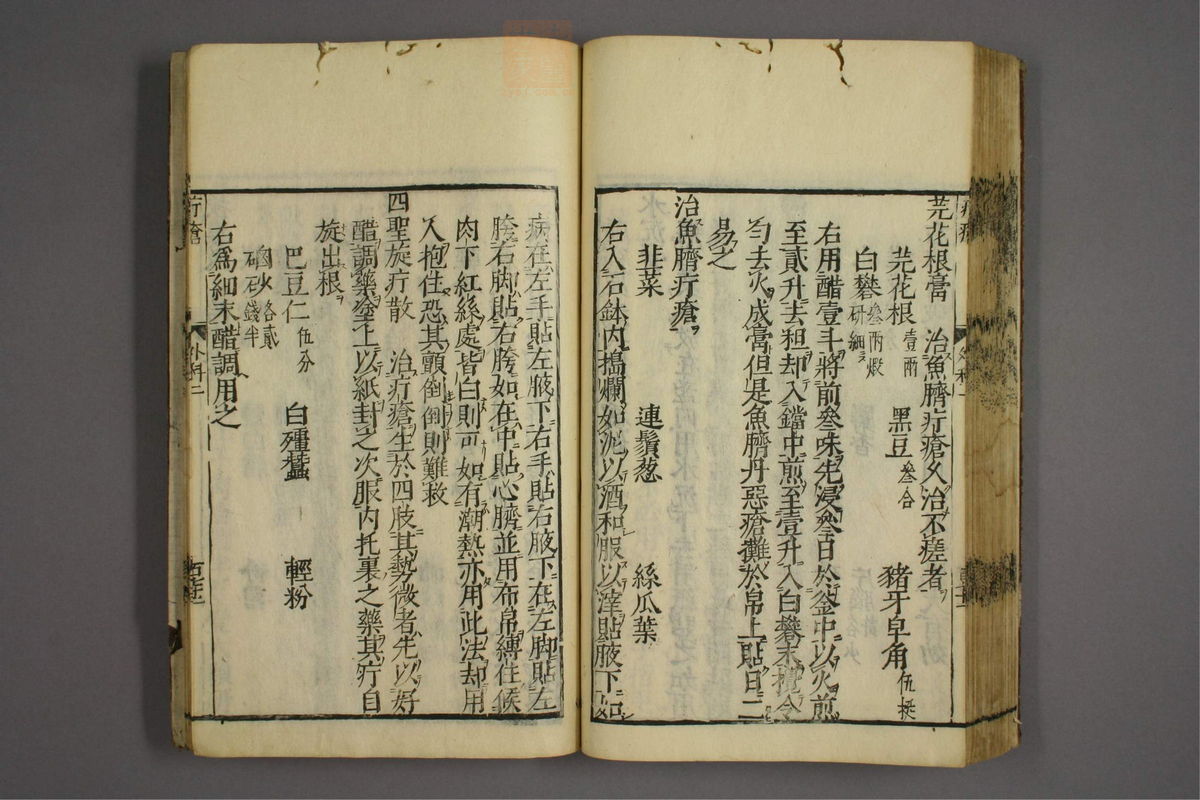 芫花根膏　治魚臍疔瘡久治不瘥者
芫花根壹兩　黑豆叄合　豬牙皁角伍挺
白礬叄兩煆研細
右用醋壹斗將前叄味先浸叄日於釜中以火煎
至貳升去粗却入鐺中煎至壹升入白礬末攪令
勻去火成膏但是魚臍丹惡瘡攤於帛上貼日二
易之
治魚臍疔瘡
韭菜　連鬚葱　絲瓜葉
右入石鉢內搗爛如泥以酒和服以滓貼腋下如
病在左手貼左腋下右手貼右腋下在左脚貼左
胯右脚貼右胯如在中貼心臍並用布帛縛住候
肉下紅絲處皆白則可如有潮熱亦用此法却用
人抱住恐其顫倒倒則難救
四聖旋疔散　治疔瘡生於四肢其勢微者先以好
醋調藥塗上以紙封之次服內托裏之藥其疔自
旋出根
巴豆仁伍分　白殭蠶　輕粉
硇砂各貳錢半
右爲細末醋調用之
疔瘡　外科二